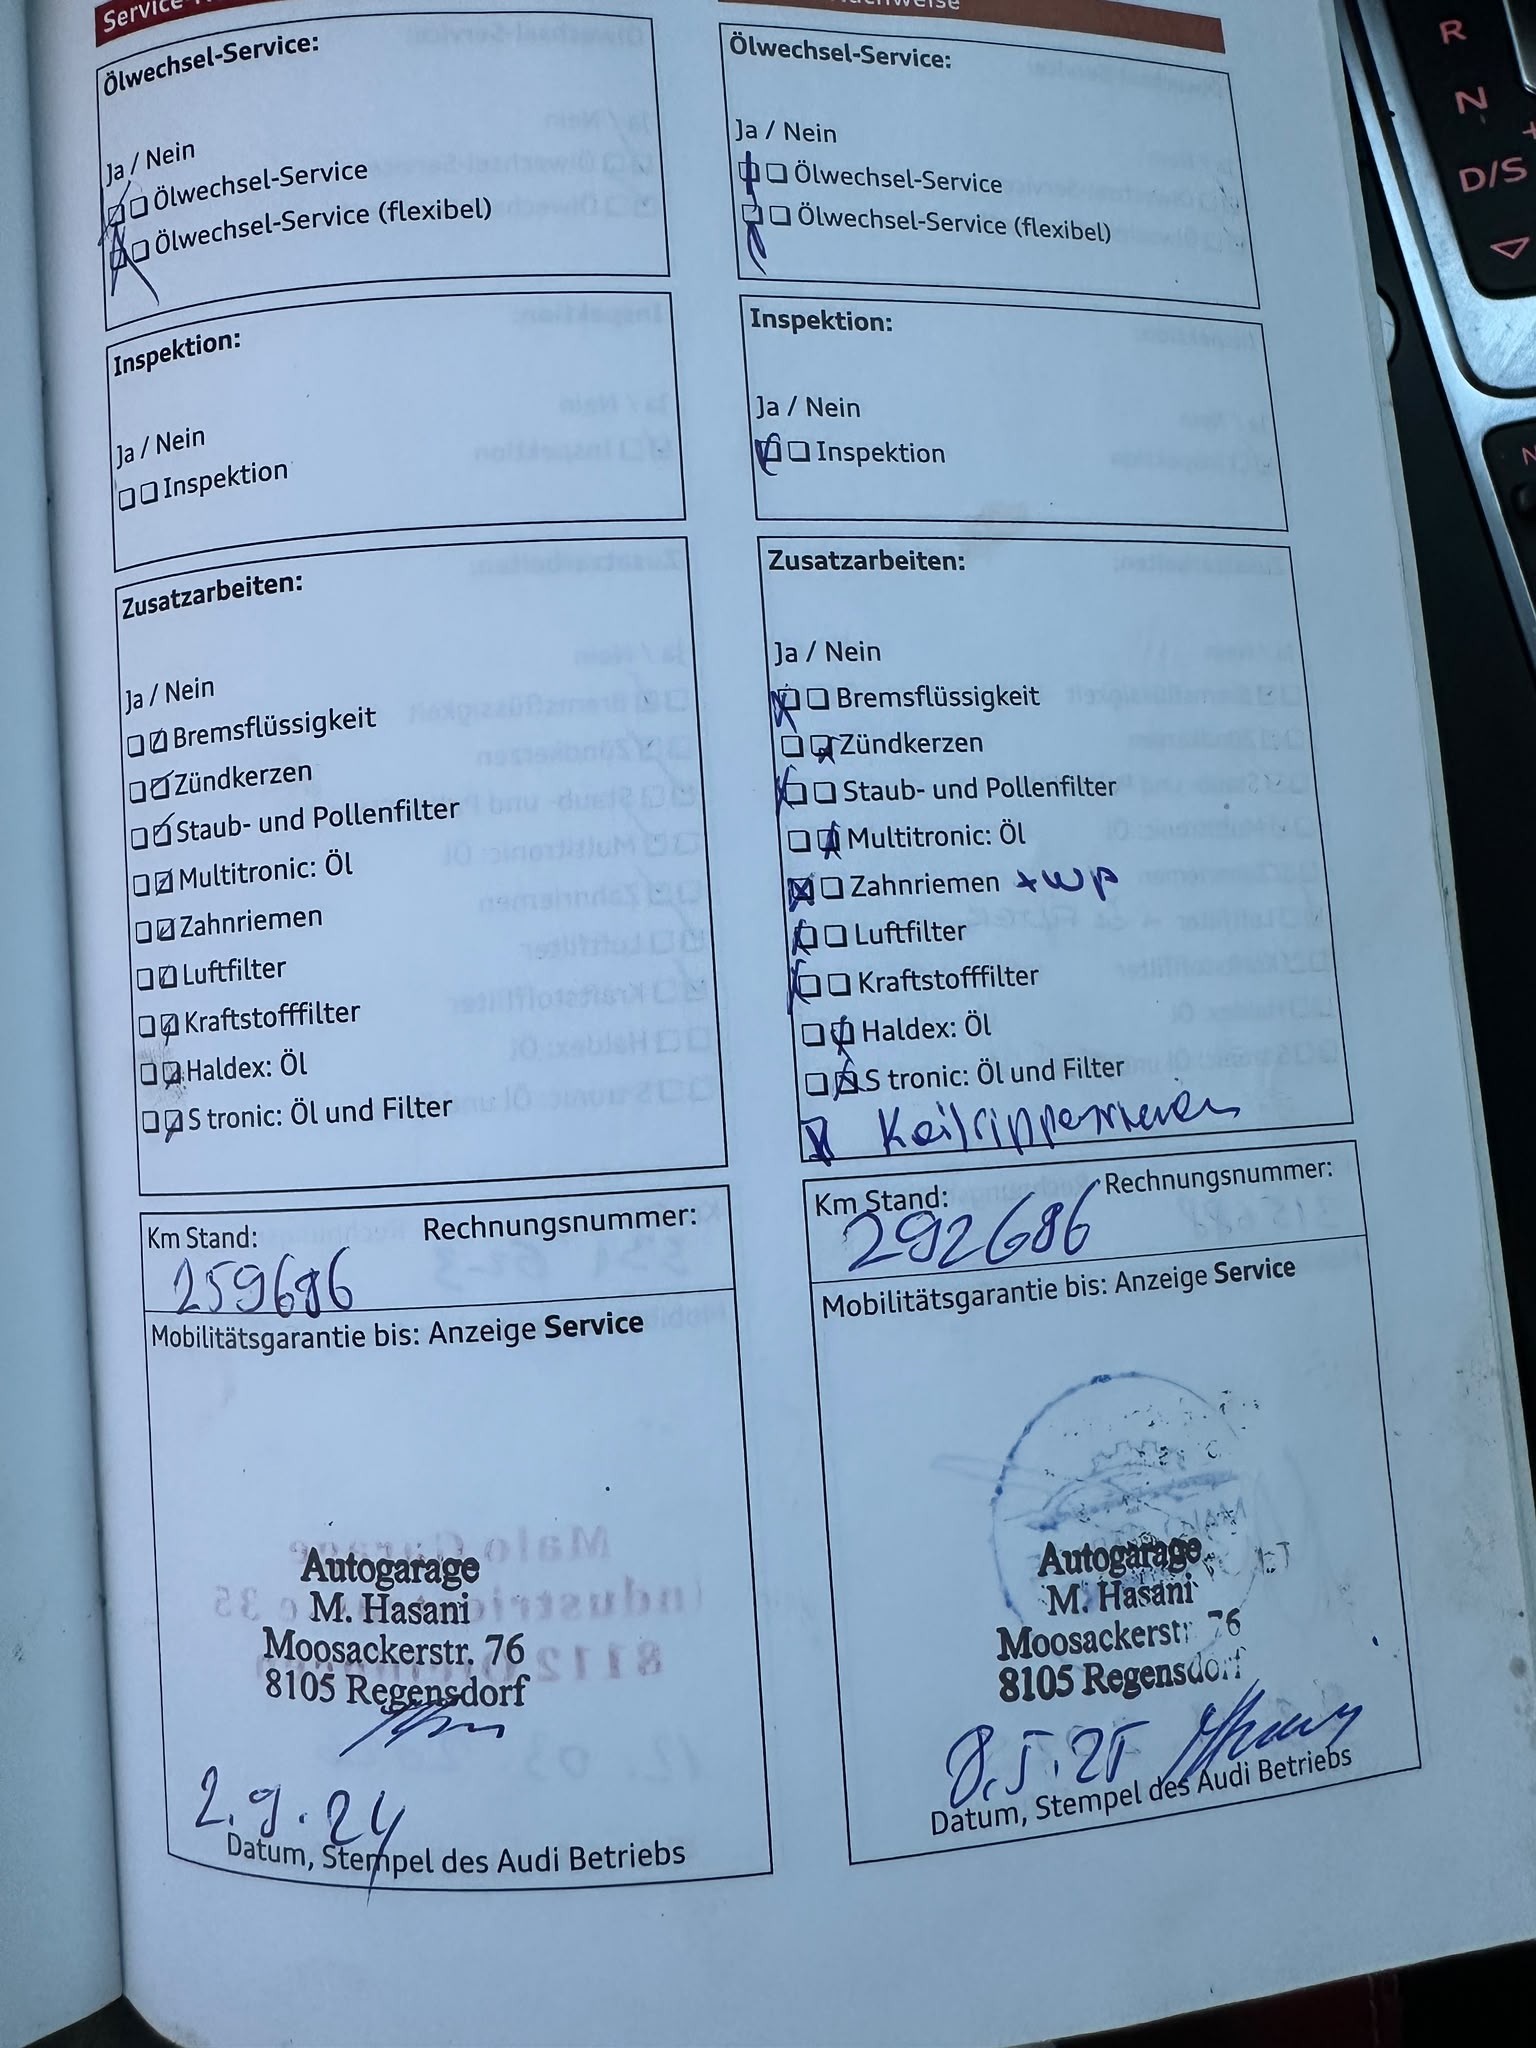 Service-
Ölwechsel-Service:
Ja / Nein
Ölwechsel-Service
Ölwechsel-Service (flexibel)
Inspektion:
Ja / Nein
Inspektion
Zusatzarbeiten:
Ja / Nein
Bremsflüssigkeit
Zündkerzen
Staub- und Pollenfilter
Multitronic: Öl
Zahnriemen
Luftfilter
Kraftstofffilter
Haldex: Öl
S tronic: Öl und Filter
Km Stand: Rechnungsnummer:
259686
Mobilitätsgarantie bis: Anzeige Service
Autogarage
M. Hasani
Moosackerstr. 76
8105 Regensdorf
2.9.24
Datum, Stempel des Audi Betriebs
Ölwechsel-Service:
Ja / Nein
Ölwechsel-Service
Ölwechsel-Service (flexibel)
Inspektion:
Ja / Nein
Inspektion
Zusatzarbeiten:
Ja / Nein
Bremsflüssigkeit
Zündkerzen
Staub- und Pollenfilter
Multitronic: Öl
Zahnriemen + WP
Luftfilter
Kraftstofffilter
Haldex: Öl
S tronic: Öl und Filter
Keilrippenriemen
Km Stand: Rechnungsnummer:
292686
Mobilitätsgarantie bis: Anzeige Service
Autogarage
M. Hasani
Moosackerstr. 76
8105 Regensdorf
8.5.25
Datum, Stempel des Audi Betriebs
R
N
D/S